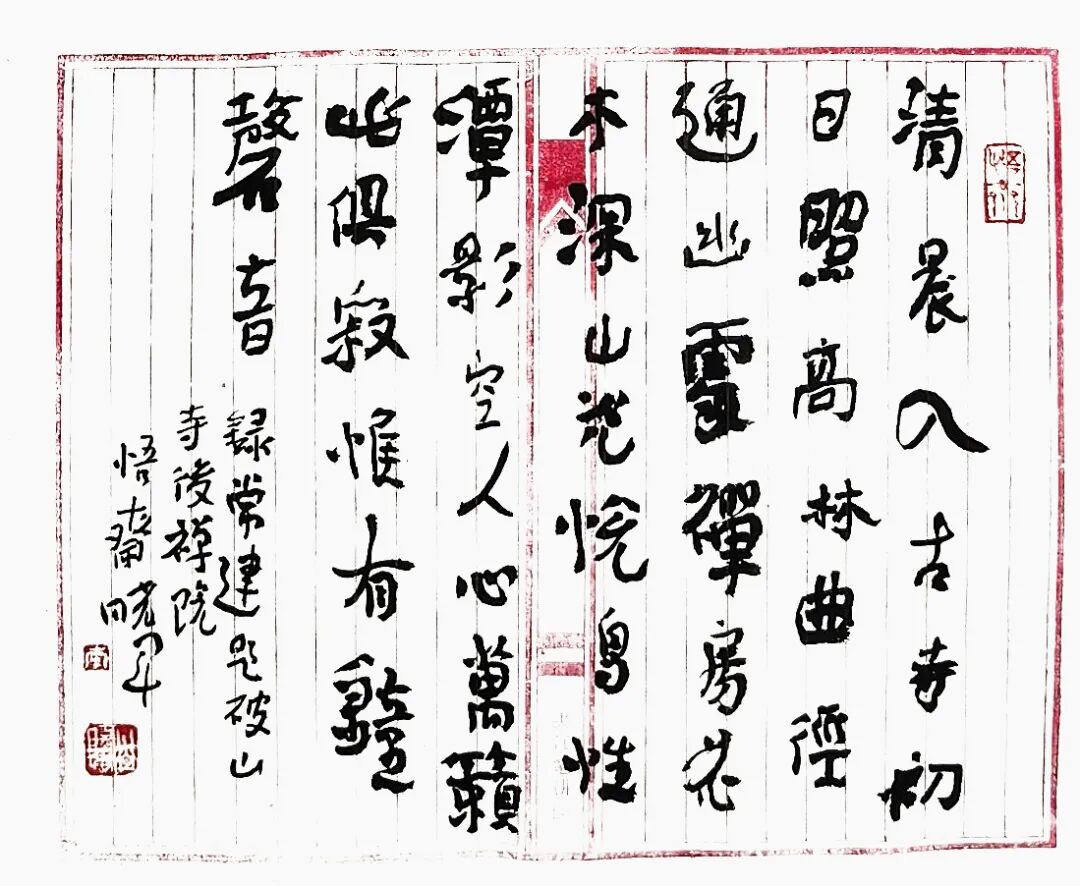 清晨入古寺初
日照高林曲徑
通幽處禪房花
木深山光悅鳥性
潭影空人心萬籟
此俱寂惟有鐘
磬音
錄常建題破山
寺後禪院
悟齋曉軍